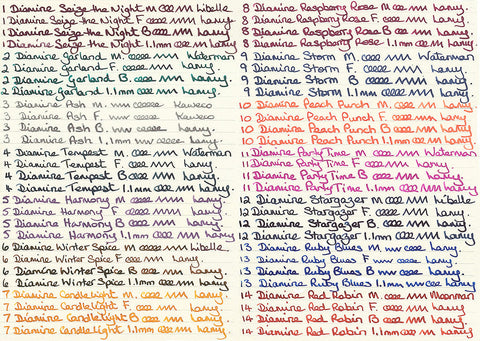 1 Diamine Seize the Night M. Libelle
1 Diamine Seize the Night F. Lamy.
1 Diamine Seize the Night B Lamy.
1 Diamine Seize the Night 1.1mm Lamy
2 Diamine Garland M. Waterman
2 Diamine Garland F. Lamy.
2 Diamine Garland B Lamy.
2 Diamine Garland 1.1mm Lamy.
3 Diamine Ash M. Kaweco
3 Diamine Ash F. Kaweco
3 Diamine Ash B. Lamy.
3 Diamine Ash 1.1mm Lamy.
4 Diamine Tempest M. Waterman
4 Diamine Tempest F. Lamy.
4 Diamine Tempest B Lamy.
4 Diamine Tempest 1.1mm Lamy.
5 Diamine Harmony M. Lamy.
5 Diamine Harmony F Lamy.
5 Diamine Harmony B Lamy.
5 Diamine Harmony 1.1mm Lamy.
6 Diamine Winter Spice M. Libelle.
6 Diamine Winter Spice F Lamy.
6 Diamine Winter Spice B Lamy.
6 Diamine Winter Spice 1.1mm Lamy.
7 Diamine Candle Light M. Lamy.
7 Diamine Candle Light F. Lamy.
7 Diamine Candle Light B Lamy.
7 Diamine Candle Light 1.1mm Lamy.
8 Diamine Raspberry Rose M. Lamy.
8 Diamine Raspberry Rose F. Lamy.
8 Diamine Raspberry Rose B Lamy.
8 Diamine Raspberry Rose 1.1mm Lamy.
9 Diamine Storm M. Waterman
9 Diamine Storm F. Lamy.
9 Diamine Storm B Lamy.
9 Diamine Storm 1.1mm Lamy.
10 Diamine Peach Punch M. Lamy.
10 Diamine Peach Punch F. Lamy.
10 Diamine Peach Punch B Lamy.
10 Diamine Peach Punch 1.1mm Lamy.
11 Diamine Party Time M Waterman
11 Diamine Party Time F. Lamy.
11 Diamine Party Time B Lamy.
11 Diamine Party Time 1.1mm Lamy
12 Diamine Stargazer M Libelle
12 Diamine Stargazer F. Lamy.
12 Diamine Stargazer B Lamy.
12 Diamine Stargazer 1.1mm Lamy.
13 Diamine Ruby Blues M Lamy.
13 Diamine Ruby Blues F Lamy.
13 Diamine Ruby Blues B Lamy.
13 Diamine Ruby Blues 1.1mm Lamy.
14 Diamine Red Robin M. Moonman
14 Diamine Red Robin F. Lamy.
14 Diamine Red Robin B Lamy.
14 Diamine Red Robin 1.1mm Lamy.